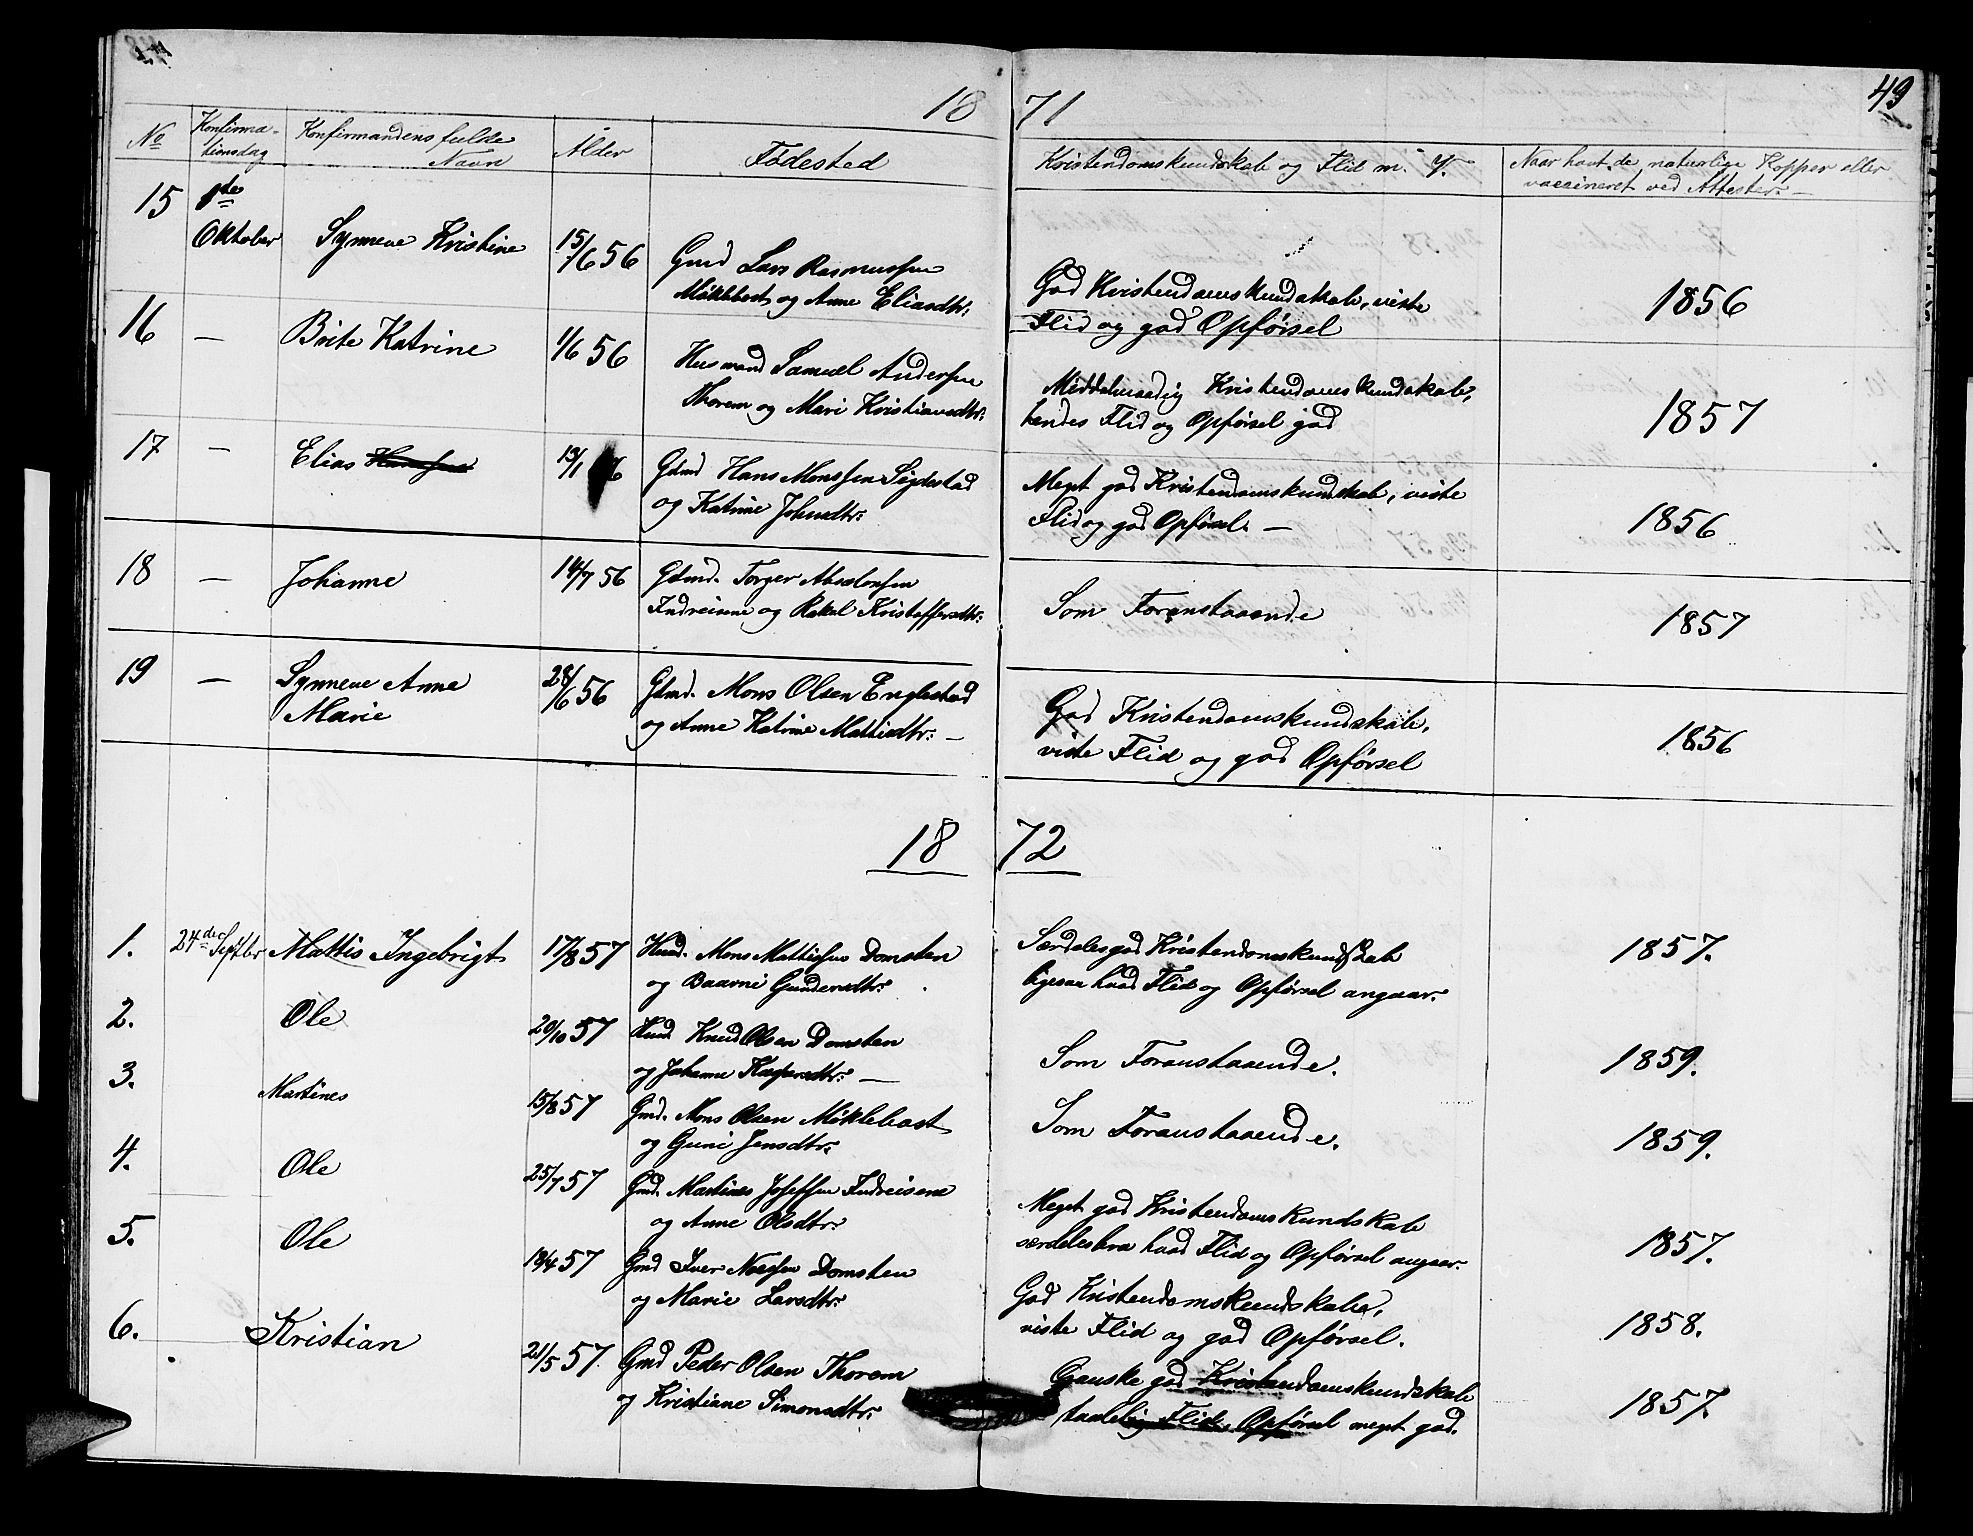 49
18 71
No
Konfirma-
tionsdag
Konfirmandens fulde
Navn
Alder
Fødested
Kristendomskundskab og Flid m. v.
Naar havt de naturlige Kopper eller
vaccineret ved Attester.
15 1ste
Oktober Synneve Kristine 15/6 56 Gmd Lars Rasmussen
Møklebost og Anne Eliasdtr:
God Kristendomskundskab, viste
Flid og god Opførsel
1856
16 — Brite Katrine 1/6 56 Husmand Samuel Andersen
Thorem og Mari Kristiansdtr:
Middelmaadig Kristendomskundskab,
hendes Flid og Opførsel god
1857
17 — Elias 13/1 Gdmd Hans Monssen Sigdestad
og Katrine Johnsdtr:
Meget god Kristendomskundskab, viste
Flid og god Opførsel. —
1856
18 — Johanne 14/7 56 Gdmd. Torger Absalonsen
Indreiene og Rakel Kristoffersdtr:
Som Foranstaaende
1857
19 — Synneve Anne
Marie
28/6 56 Gdmd. Mons Olsen Englestad
og Anne Katrine Mattisdtr: —
God Kristendomskundskab,
viste Flid og god Opførsel
1856
18 72
1. 24de Septbr Mattis Ingebrigt 17/8 57 Husd. Mons Mathisen Domsten
og Baarni Gundersdtr:
Særdeles god Kristendomskundskab
ligesaa hvad Flid og Opførsel angaar.
1857.
2. Ole 20/10 57 Husd Knud Olsen Domsten
og Johanne Kaspersdtr: —
Som Foranstaaende.
1859.
3. Martines 15/8 57 Gmd. Mons Olsen Møklebost
og Guni Jensdtr:
Som Foranstaaende.
1859.
4. Ole 25/7 57 Gmd. Martines Josefsen Indreiene
og Anne Olsdtr:
Meget god Kristendomskundskab
særdeles bra hvad Flid og Opførsel angaar.
1857.
5. Ole 19/4 57 Gmd Iver Domsten
og Marie Larsdtr:
God Kristendomskundskab,
viste Flid og god Opførsel.
1858.
6. Kristian 21/5 57. Gmd Peder Olsen Thorem
og Kristiane Simonsdtr:
Ganske god Kristendomskundskab
taalelig Flid, Opførsel meget god.
1857.